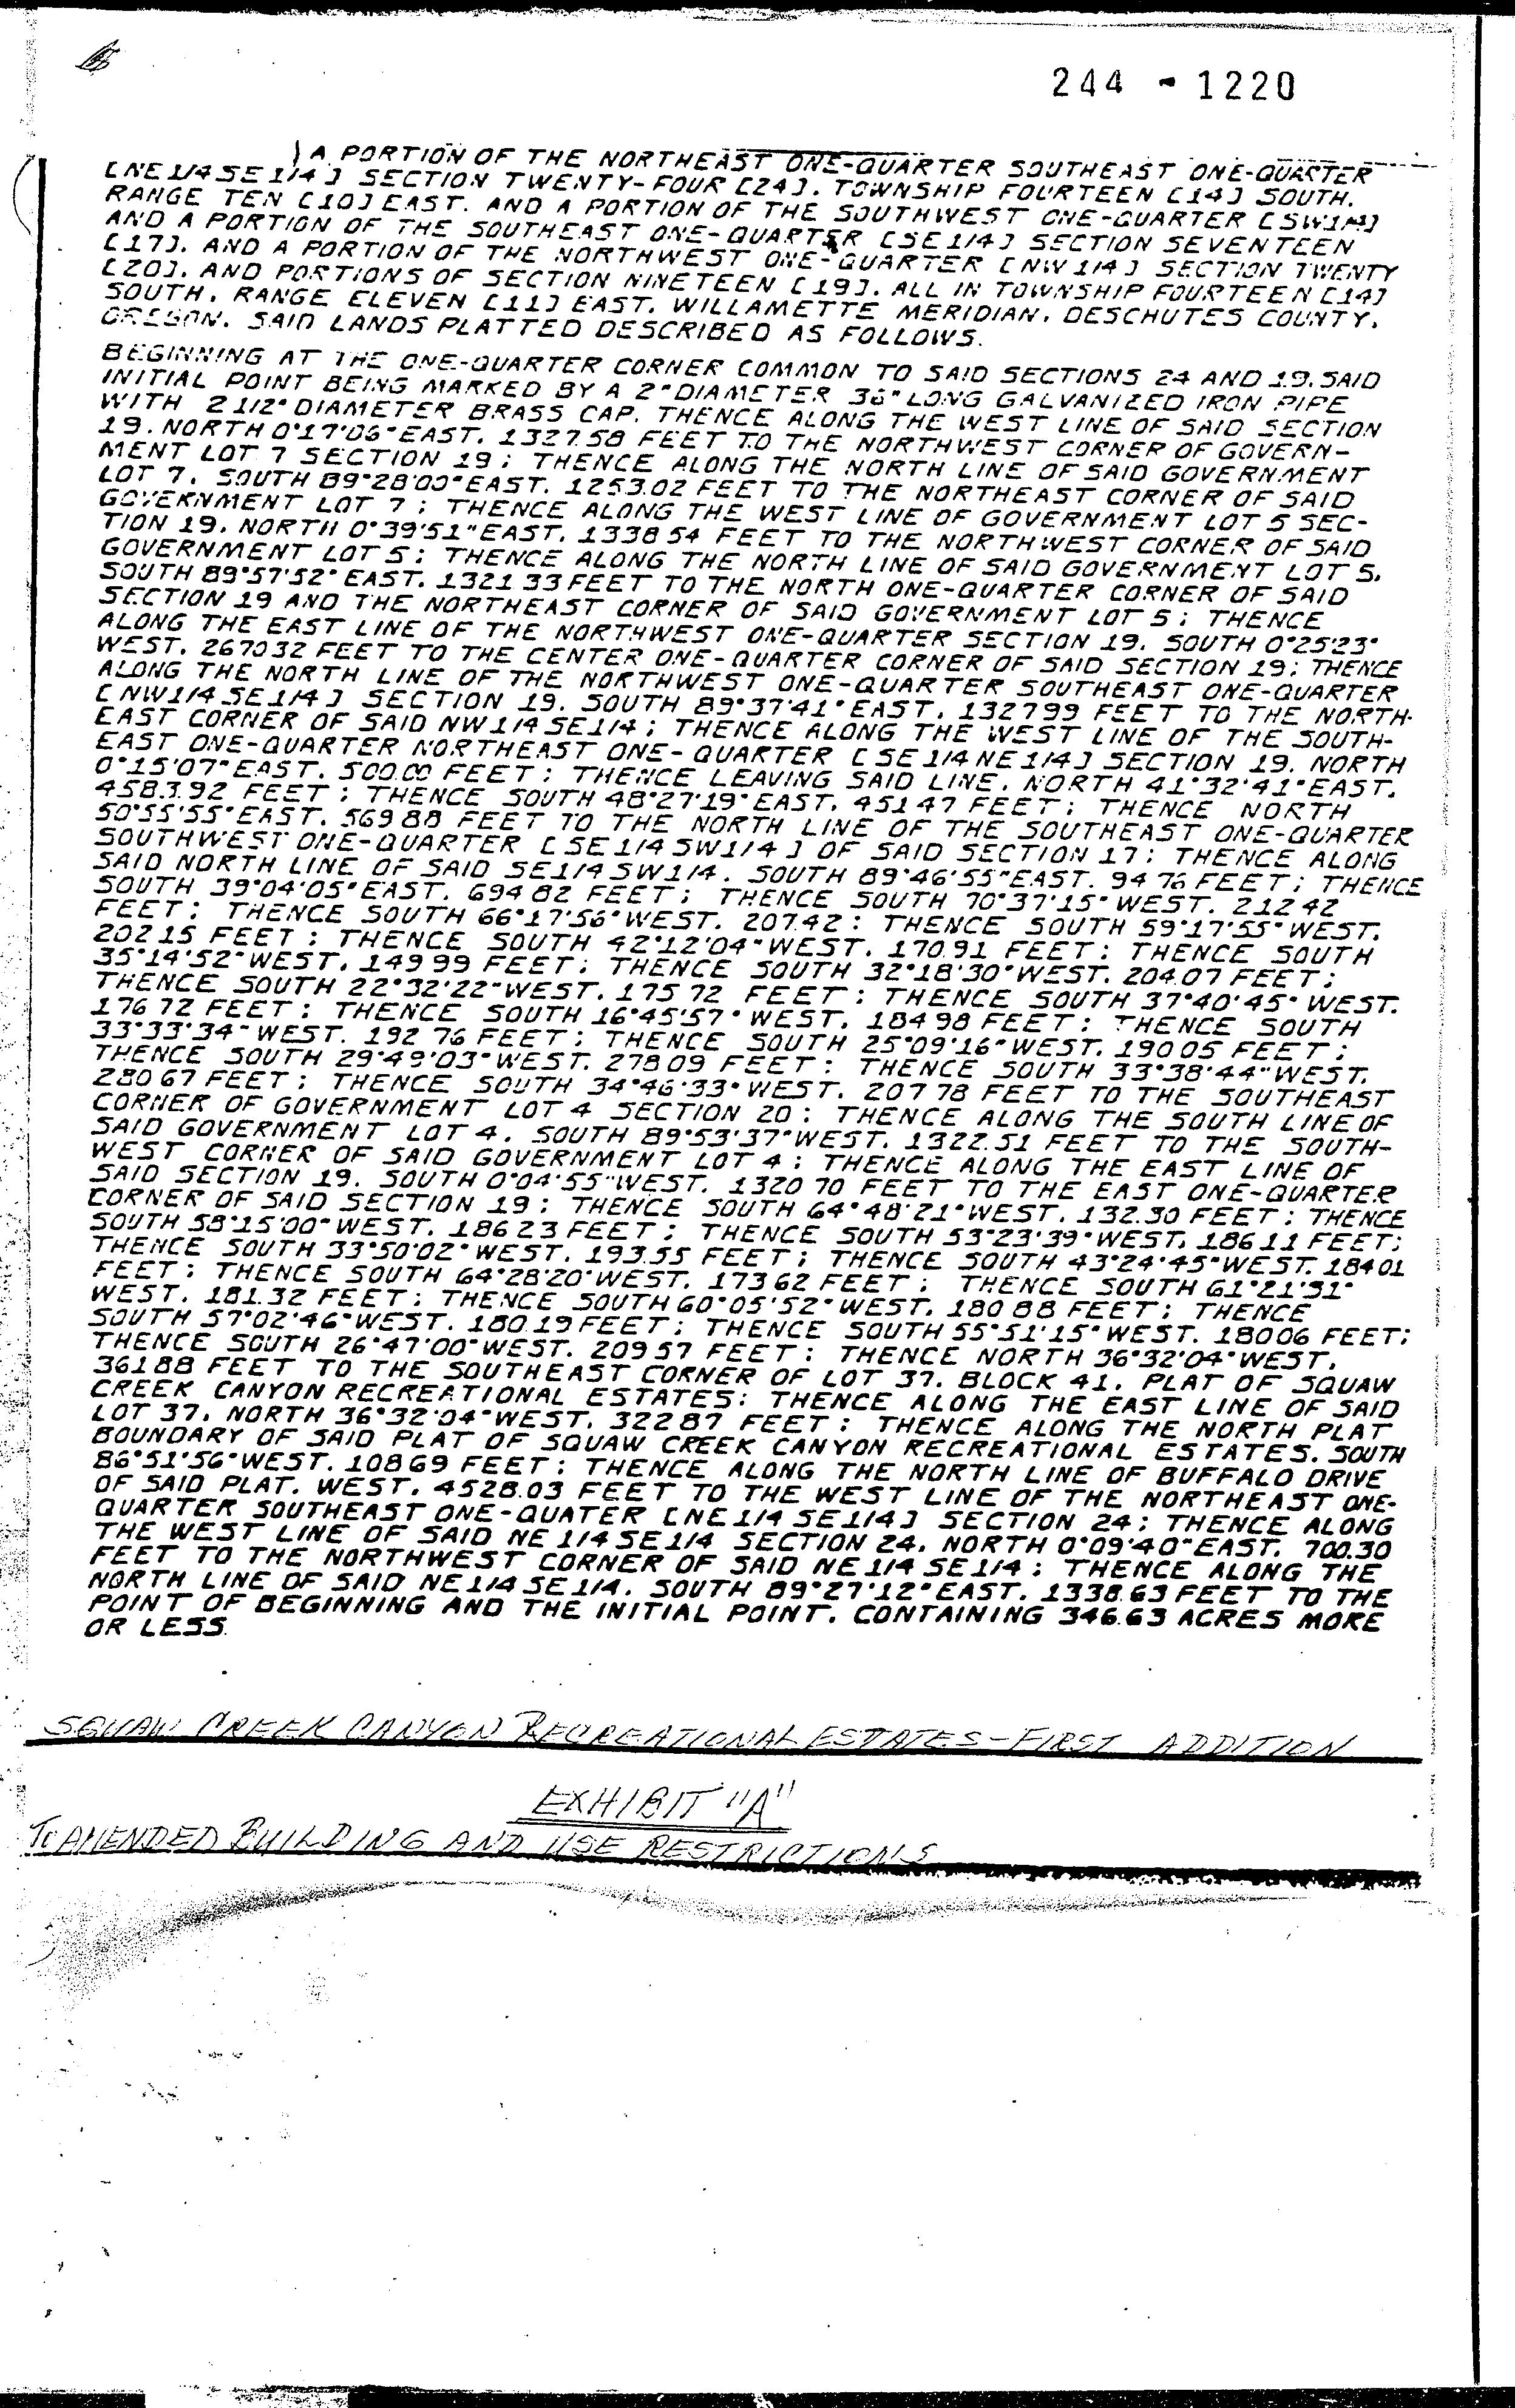 244 - 1220
A PORTION OF THE NORTHEAST ONE-QUARTER SOUTHEAST ONE-QUARTER
[NE 1/4 SE 1/4] SECTION TWENTY-FOUR [24], TOWNSHIP FOURTEEN [14] SOUTH,
RANGE TEN [10] EAST, AND A PORTION OF THE SOUTHWEST ONE-QUARTER [SW1/4]
AND A PORTION OF THE SOUTHEAST ONE-QUARTER [SE 1/4] SECTION SEVENTEEN
[17], AND A PORTION OF THE NORTHWEST ONE-QUARTER [NW 1/4] SECTION TWENTY
[20], AND PORTIONS OF SECTION NINETEEN [19], ALL IN TOWNSHIP FOURTEEN [14]
SOUTH, RANGE ELEVEN [11] EAST, WILLAMETTE MERIDIAN, DESCHUTES COUNTY,
OREGON. SAID LANDS PLATTED DESCRIBED AS FOLLOWS.
BEGINNING AT THE ONE-QUARTER CORNER COMMON TO SAID SECTIONS 24 AND 19, SAID
INITIAL POINT BEING MARKED BY A 2" DIAMETER 36" LONG GALVANIZED IRON PIPE
WITH 2 1/2" DIAMETER BRASS CAP, THENCE ALONG THE WEST LINE OF SAID SECTION
19, NORTH 0°17'06" EAST, 1327.58 FEET TO THE NORTHWEST CORNER OF GOVERN-
MENT LOT 7 SECTION 19; THENCE ALONG THE NORTH LINE OF SAID GOVERNMENT
LOT 7, SOUTH 89°28'00" EAST, 1253.02 FEET TO THE NORTHEAST CORNER OF SAID
GOVERNMENT LOT 7; THENCE ALONG THE WEST LINE OF GOVERNMENT LOT 5 SEC-
TION 19, NORTH 0°39'51" EAST, 1338.54 FEET TO THE NORTHWEST CORNER OF SAID
GOVERNMENT LOT 5; THENCE ALONG THE NORTH LINE OF SAID GOVERNMENT LOT 5,
SOUTH 89°57'52" EAST, 1321.33 FEET TO THE NORTH ONE-QUARTER CORNER OF SAID
SECTION 19 AND THE NORTHEAST CORNER OF SAID GOVERNMENT LOT 5; THENCE
ALONG THE EAST LINE OF THE NORTHWEST ONE-QUARTER SECTION 19, SOUTH 0°25'23"
WEST, 2670.32 FEET TO THE CENTER ONE-QUARTER CORNER OF SAID SECTION 19; THENCE
ALONG THE NORTH LINE OF THE NORTHWEST ONE-QUARTER SOUTHEAST ONE-QUARTER
[NW1/4 SE1/4] SECTION 19, SOUTH 89°37'41" EAST, 1327.99 FEET TO THE NORTH-
EAST CORNER OF SAID NW1/4 SE1/4; THENCE ALONG THE WEST LINE OF THE SOUTH-
EAST ONE-QUARTER NORTHEAST ONE-QUARTER [SE 1/4 NE 1/4] SECTION 19, NORTH
0°15'07" EAST, 500.00 FEET; THENCE LEAVING SAID LINE, NORTH 41°32'41" EAST,
4583.92 FEET; THENCE SOUTH 48°27'19" EAST, 451.47 FEET; THENCE NORTH
50°55'55" EAST, 569.88 FEET TO THE NORTH LINE OF THE SOUTHEAST ONE-QUARTER
SOUTHWEST ONE-QUARTER [SE 1/4 SW1/4] OF SAID SECTION 17; THENCE ALONG
SAID NORTH LINE OF SAID SE1/4 SW1/4, SOUTH 89°46'55" EAST, 94.76 FEET; THENCE
SOUTH 39°04'05" EAST, 694.82 FEET; THENCE SOUTH 70°37'15" WEST, 212.42
FEET; THENCE SOUTH 66°17'56" WEST, 207.42; THENCE SOUTH 59°17'55" WEST,
202.15 FEET; THENCE SOUTH 42°12'04" WEST, 170.91 FEET; THENCE SOUTH
35°14'52" WEST, 149.99 FEET; THENCE SOUTH 32°18'30" WEST, 204.07 FEET;
THENCE SOUTH 22°32'22" WEST, 175.72 FEET; THENCE SOUTH 37°40'45" WEST,
176.72 FEET; THENCE SOUTH 16°45'57" WEST, 184.98 FEET; THENCE SOUTH
33°33'34" WEST, 192.76 FEET; THENCE SOUTH 25°09'16" WEST, 190.05 FEET;
THENCE SOUTH 29°49'03" WEST, 278.09 FEET; THENCE SOUTH 33°38'44" WEST,
280.67 FEET; THENCE SOUTH 34°46'33" WEST, 207.78 FEET TO THE SOUTHEAST
CORNER OF GOVERNMENT LOT 4 SECTION 20; THENCE ALONG THE SOUTH LINE OF
SAID GOVERNMENT LOT 4, SOUTH 89°53'37" WEST, 1322.51 FEET TO THE SOUTH-
WEST CORNER OF SAID GOVERNMENT LOT 4; THENCE ALONG THE EAST LINE OF
SAID SECTION 19, SOUTH 0°04'55" WEST, 1320.70 FEET TO THE EAST ONE-QUARTER
CORNER OF SAID SECTION 19; THENCE SOUTH 64°48'21" WEST, 132.30 FEET; THENCE
SOUTH 58°15'00" WEST, 186.23 FEET; THENCE SOUTH 53°23'39" WEST, 186.11 FEET;
THENCE SOUTH 33°50'02" WEST, 193.55 FEET; THENCE SOUTH 43°24'45" WEST, 184.01
FEET; THENCE SOUTH 64°28'20" WEST, 173.62 FEET; THENCE SOUTH 61°21'31"
WEST, 181.32 FEET; THENCE SOUTH 60°05'52" WEST, 180.88 FEET; THENCE
SOUTH 57°02'46" WEST, 180.19 FEET; THENCE SOUTH 55°51'15" WEST, 180.06 FEET;
THENCE SOUTH 26°47'00" WEST, 209.57 FEET; THENCE NORTH 36°32'04" WEST,
361.88 FEET TO THE SOUTHEAST CORNER OF LOT 37, BLOCK 41, PLAT OF SQUAW
CREEK CANYON RECREATIONAL ESTATES; THENCE ALONG THE EAST LINE OF SAID
LOT 37, NORTH 36°32'04" WEST, 322.87 FEET; THENCE ALONG THE NORTH PLAT
BOUNDARY OF SAID PLAT OF SQUAW CREEK CANYON RECREATIONAL ESTATES, SOUTH
86°51'56" WEST, 108.69 FEET; THENCE ALONG THE NORTH LINE OF BUFFALO DRIVE
OF SAID PLAT, WEST, 4528.03 FEET TO THE WEST LINE OF THE NORTHEAST ONE-
QUARTER SOUTHEAST ONE-QUATER [NE 1/4 SE 1/4] SECTION 24; THENCE ALONG
THE WEST LINE OF SAID NE 1/4 SE 1/4 SECTION 24, NORTH 0°09'40" EAST, 700.30
FEET TO THE NORTHWEST CORNER OF SAID NE 1/4 SE 1/4; THENCE ALONG THE
NORTH LINE OF SAID NE 1/4 SE 1/4, SOUTH 89°27'12" EAST, 1338.63 FEET TO THE
POINT OF BEGINNING AND THE INITIAL POINT, CONTAINING 346.63 ACRES MORE
OR LESS.
SQUAW CREEK CANYON RECREATIONAL ESTATES - FIRST ADDITION
EXHIBIT "A"
TO AMENDED BUILDING AND USE RESTRICTIONS